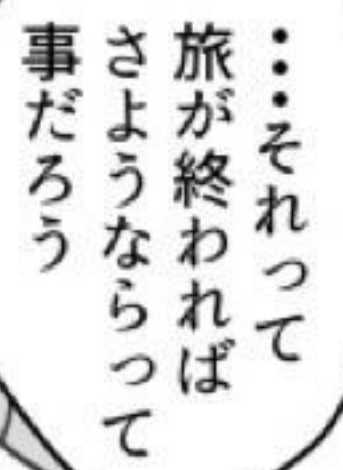 …それって
旅が終われば
さようならって
事だろう